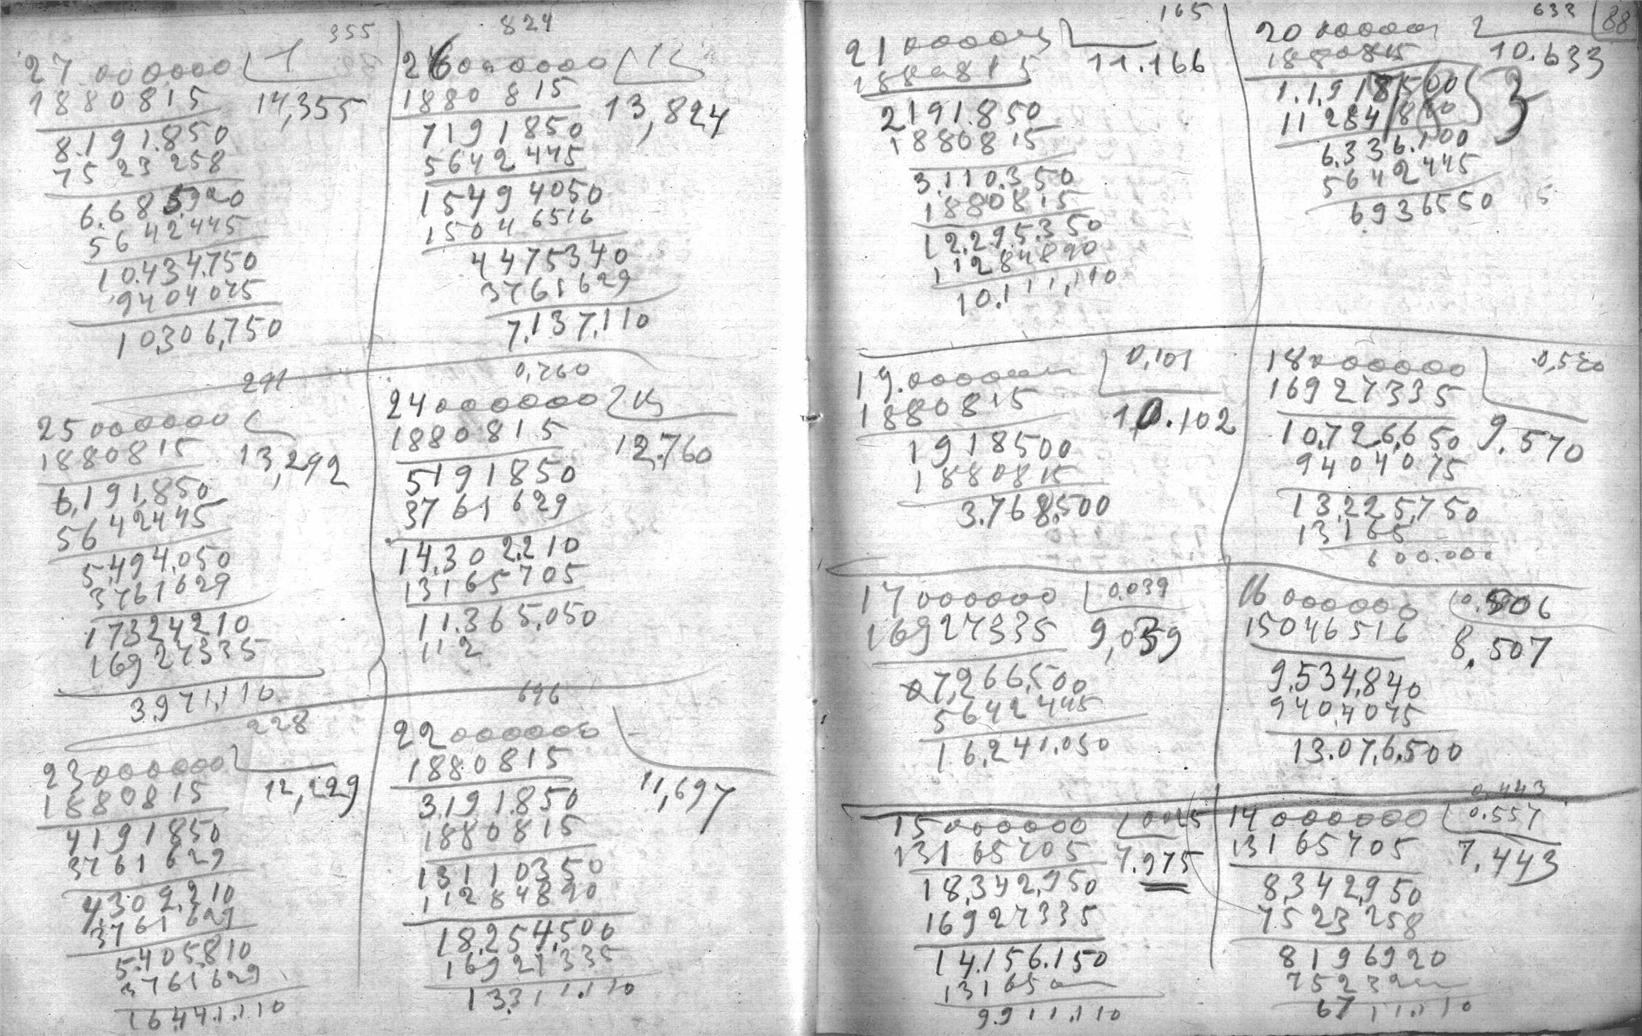 355
27 000000
1880815
14,355
8.191.850
7523258
6.685920
5642445
10.434.750
9404075
10,306,750
824
26000000
1880815
13,824
7191850
5642445
15494050
15046516
4475340
3761629
7,137,110
291
25000000
1880815
13,292
6,191,850
5642445
5,494,050
3761629
17324210
16927335
3,971,110
0,760
24000000
1880815
12.760
5191850
3761629
14.302.210
13165705
11.365,050
112
228
23000000
1880815
12,229
4191850
3761629
4,302,210
3761629
5.405,810
3761,629
16441.110
696
22000000
1880815
11,697
3,191.850
1880815
13110350
11284890
18,254,500
16927335
1331 1.110
165
21000000
1880815
11.166
2191.850
1880815
3,110.350
1880815
12.295.350
11284890
10.111,110
633
88
20000000
1880815
10.633
3
1.1.918500
11284880
6.336.100
5642445
6.936550
19.000000
0,101
1880815
10.102
1918500
1880815
3.768,500
18000000
0,530
16927335
9.570
10,726,650
9404075
13,225,750
13165
600.000
17000000
0,039
16927335
9,039
07,266,500
5642445
16,241,050
16000000
0.506
15046516
8,507
9,534,840
940,4075
13.076,500
15000000
0025
13165705
7.975
18,342,950
16927335
14.156.150
13165
9911.110
0,443
14000000
0.557
13165705
7.443
8,342,950
7523258
8196920
7523
6711.110